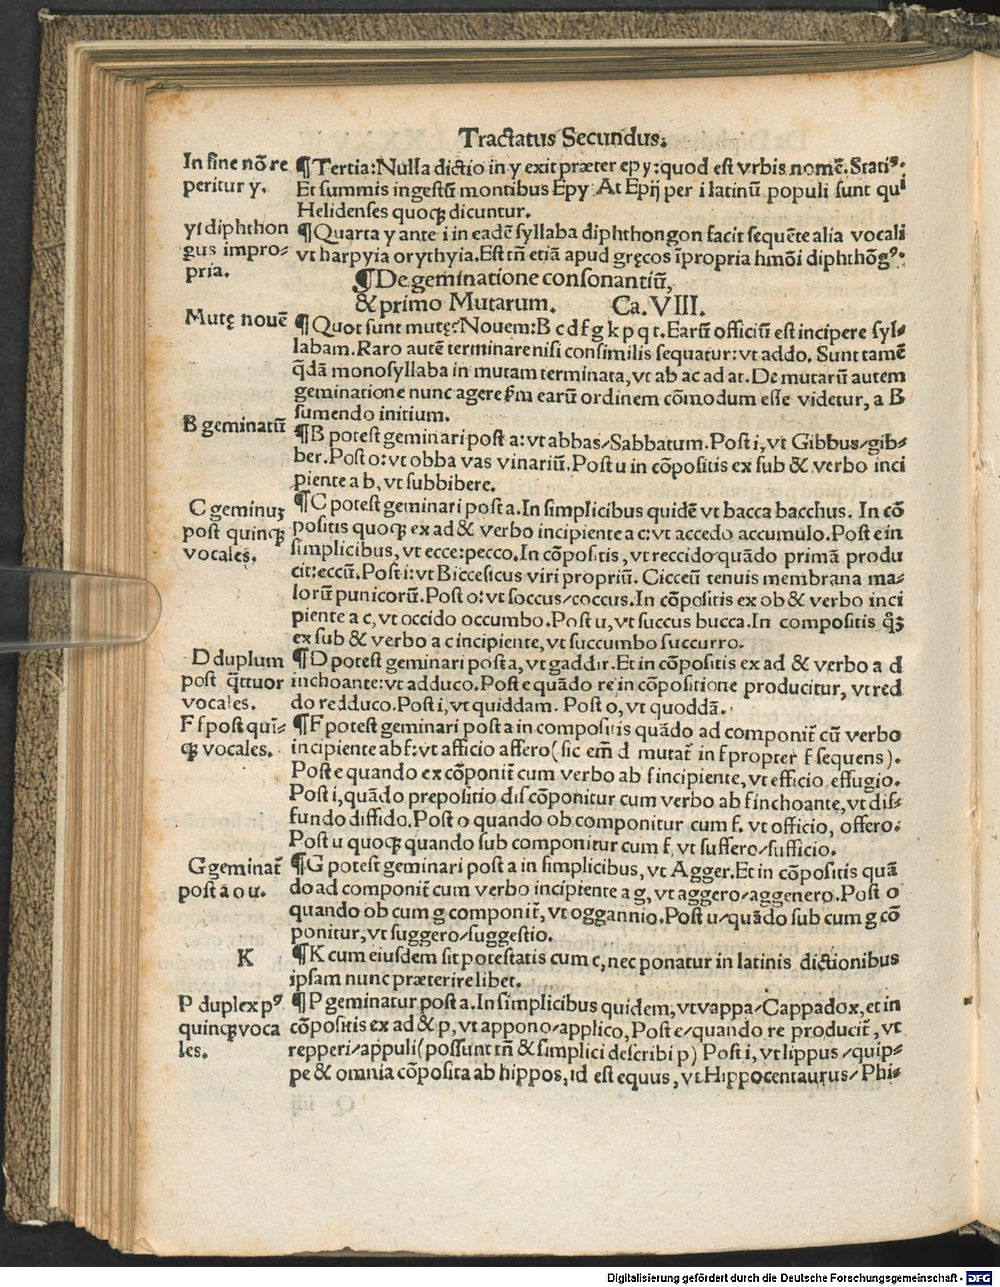 Tractatus Secundus.
In fine nõ re
peritur y.
¶Tertia: Nulla dictio in y exit præter epy: quod est vrbis nomẽ. Statiꝰ.
Et summis ingestũ montibus Epy At Epij per i latinũ populi sunt qui
Helidenses quoqꝫ dicuntur.
yi diphthon
gus impro-
pria.
¶Quarta y ante i in eadẽ syllaba diphthongon facit sequẽte alia vocali
vt harpyia orythyia. Est tñ etiã apud gręcos ĩpropria hmõi diphthõgꝰ.
¶De geminatione consonantiũ,
& primo Mutarum. Ca. VIII.
Mutę nouẽ
¶Quot sunt mutę? Nouem: B c d f g k p q t. Earũ officiũ est incipere syl-
labam. Raro autẽ terminare nisi consimilis sequatur: vt addo. Sunt tamẽ
q̃dã monosyllaba in mutam terminata, vt ab ac ad at. De mutarũ autem
geminatione nunc agere ẜm earũ ordinem cõmodum esse videtur, a B
sumendo initium.
B geminatũ
¶B potest geminari post a: vt abbas/Sabbatum. Post i, vt Gibbus/gib-
ber. Post o: vt obba vas vinariũ. Post u in cõpositis ex sub & verbo inci
piente a b, vt subbibere.
C geminuꝫ
post quinqꝫ
vocales.
¶C potest geminari post a. In simplicibus quidẽ vt bacca bacchus. In cõ
positis quoqꝫ ex ad & verbo incipiente a c: vt accedo accumulo. Post e in
simplicibus, vt ecce: pecco. In cõpositis, vt reccido quãdo primã produ
cit: eccũ. Post i: vt Biccesicus viri propriũ. Cicceũ tenuis membrana ma-
lorũ punicorũ. Post o: vt soccus/coccus. In cõpositis ex ob & verbo inci
piente a c, vt occido occumbo. Post u, vt succus bucca. In compositis q̃ꝫ
ex sub & verbo a c incipiente, vt succumbo succurro.
D duplum
post q̃ttuor
vocales.
¶D potest geminari post a, vt gaddir. Et in cõpositis ex ad & verbo a d
inchoante: vt adduco. Post e quãdo re in cõpositione producitur, vt red
do redduco. Post i, vt quiddam. Post o, vt quoddã.
F f post quĩ-
qꝫ vocales.
¶F potest geminari post a in compositis quãdo ad componit̃ cũ verbo
incipiente ab f: vt afficio affero (sic em̃ d mutat̃ in f propter f sequens).
Post e quando ex cõponit̃ cum verbo ab f incipiente, vt efficio effugio.
Post i, quãdo prepositio dis cõponitur cum verbo ab f inchoante, vt dif-
fundo diffido. Post o quando ob componitur cum f. vt officio, offero.
Post u quoqꝫ quando sub componitur cum f, vt suffero/sufficio.
G geminat̃
post a o u.
¶G potest geminari post a in simplicibus, vt Agger. Et in cõpositis quã
do ad componit̃ cum verbo incipiente a g, vt aggero/aggenero. Post o
quando ob cum g componit̃, vt oggannio. Post u/quãdo sub cum g cõ
ponitur, vt suggero/suggestio.
K
¶K cum eiusdem sit potestatis cum c, nec ponatur in latinis dictionibus
ipsam nunc præterire libet.
P duplex pꝰ
quinqꝫ voca
les.
¶P geminatur post a. In simplicibus quidem, vt vappa/Cappadox, et in
cõpositis ex ad & p, vt appono/applico, Post e/quando re producit̃, vt
repperi/appuli (possunt tñ & simplici describi p) Post i, vt lippus/quip-
pe & omnia cõposita ab hippos, id est equus, vt Hippocentaurus/Phi-
Digitalisierung gefördert durch die Deutsche Forschungsgemeinschaft - DFG